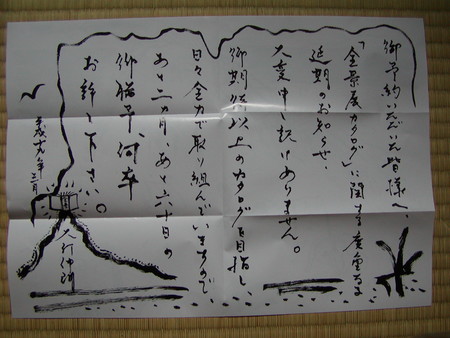 御予約いただいた皆様へ、
「全景展カタログ」に関する度重なる
延期のお知らせ、
大変申し訳けありません。
御期待以上のカタログを目指し
日々全力で取り組んでいますので
あと二ヵ月、あと六十日の
御猶予、何卒
お許し下さい。
平成十九年三月
大竹伸朗